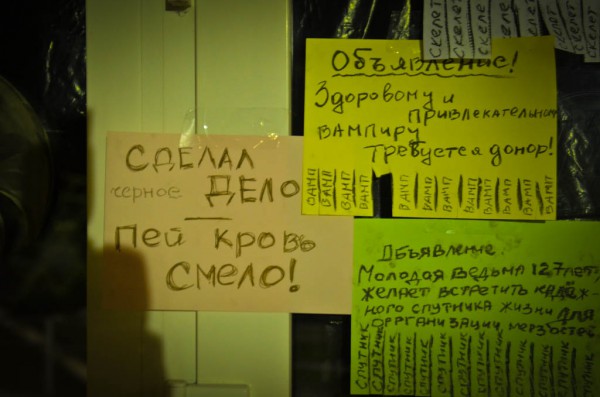 СКЕЛЕТ СКЕЛЕТ СКЕЛЕТ СКЕЛЕТ СКЕЛЕТ СКЕЛЕТ СКЕЛЕТ
Объявление!
Здоровому и
привлекательному
вампиру
требуется донор!
ВАМП ВАМП ВАМП ВАМП ВАМП ВАМП ВАМП ВАМП ВАМП ВАМП ВАМП
СДЕЛАЛ
черное ДЕЛО
Пей кровь
СМЕЛО!
Объявление.
Молодая ведьма 127 лет,
желает встретить надёж-
ного спутника жизни для
организации мерзостей
СПУТНИК СПУТНИК СПУТНИК СПУТНИК СПУТНИК СПУТНИК СПУТНИК СПУТНИК СПУТНИК СПУТНИК